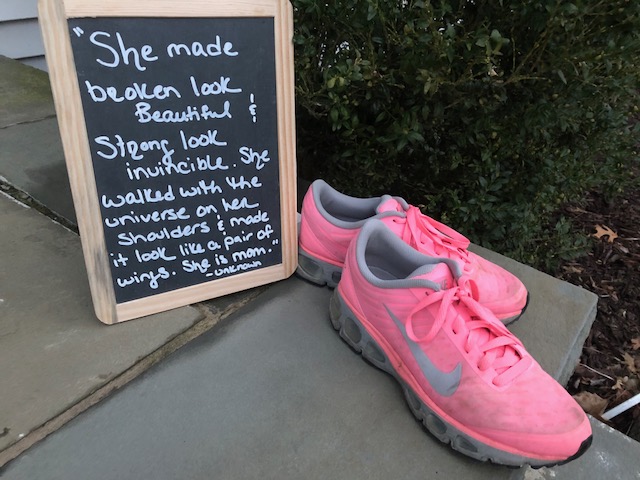 "She made
broken look
Beautiful &
Strong look
invincible. She
walked with the
universe on her
shoulders & made
it look like a pair of
wings. She is mom."
- unknown